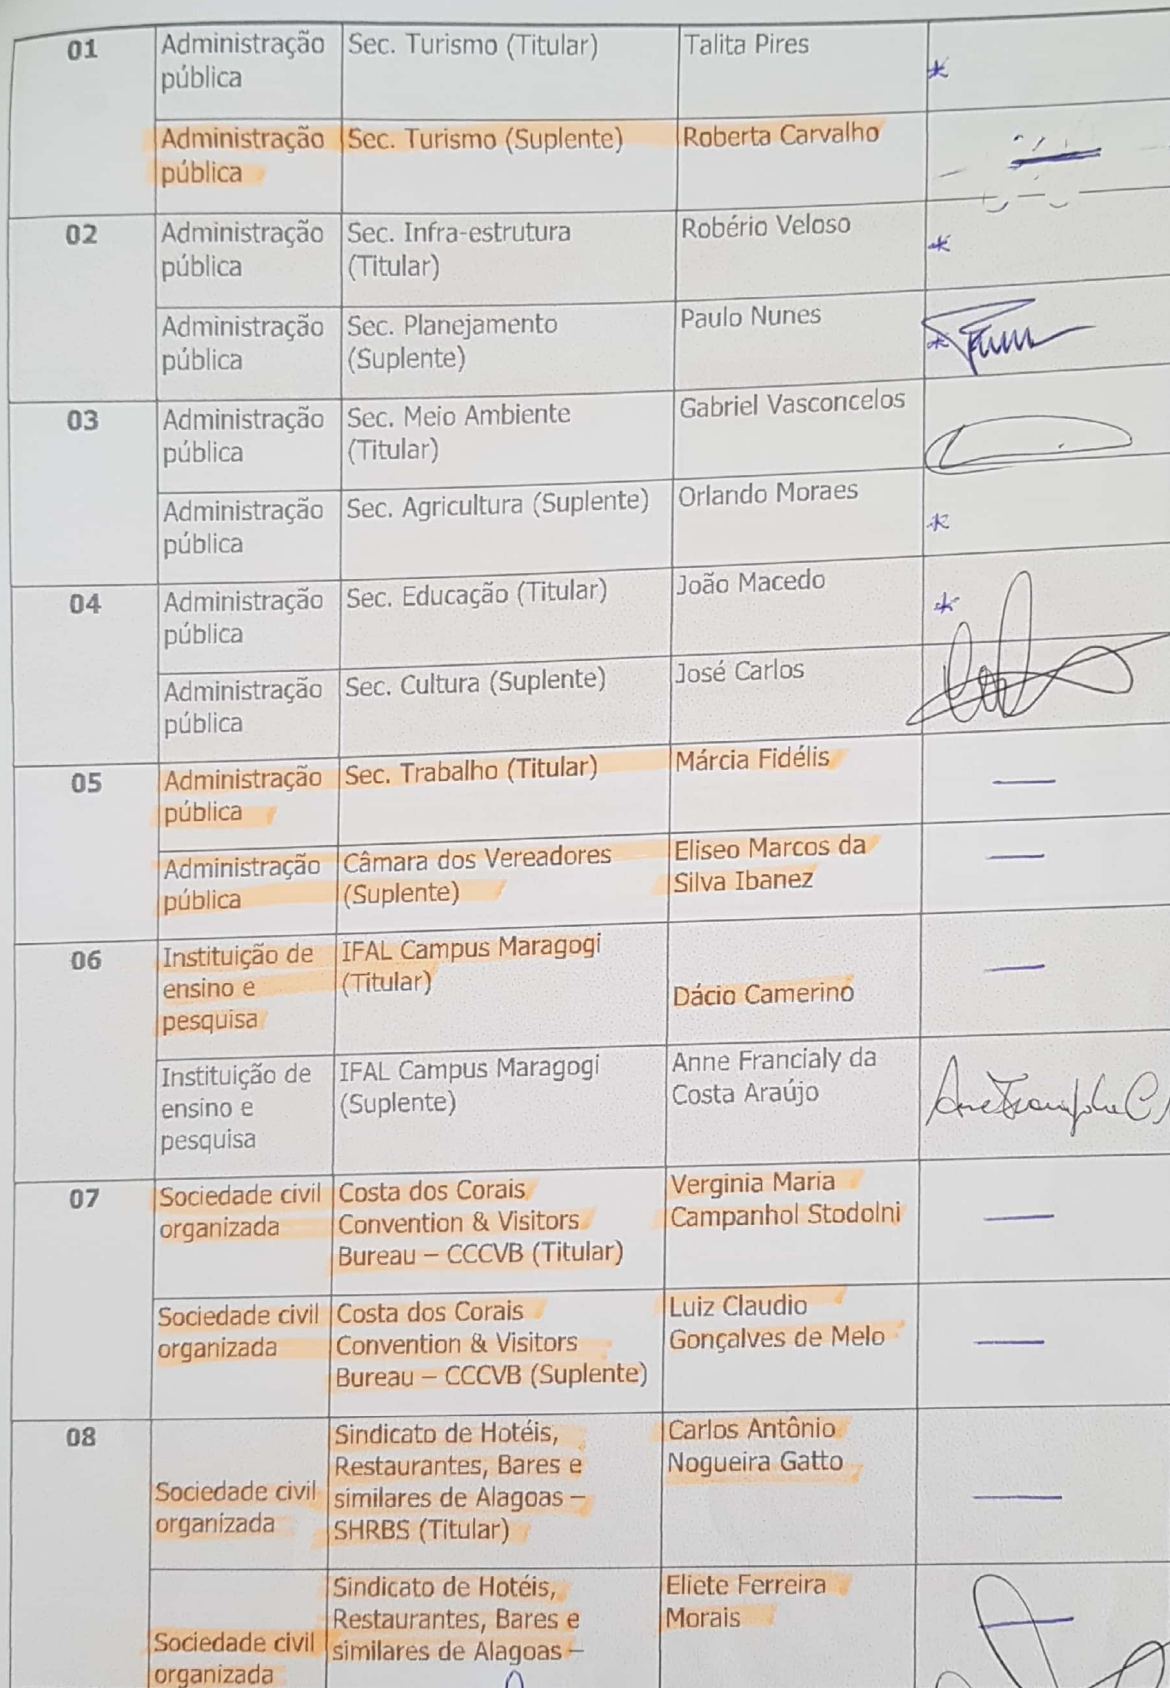 01
Administração
pública
Sec. Turismo (Titular)
Talita Pires
Administração
pública
Sec. Turismo (Suplente)
Roberta Carvalho
02
Administração
pública
Sec. Infra-estrutura
(Titular)
Robério Veloso
Administração
pública
Sec. Planejamento
(Suplente)
Paulo Nunes
03
Administração
pública
Sec. Meio Ambiente
(Titular)
Gabriel Vasconcelos
Administração
pública
Sec. Agricultura (Suplente)
Orlando Moraes
04
Administração
pública
Sec. Educação (Titular)
João Macedo
Administração
pública
Sec. Cultura (Suplente)
José Carlos
05
Administração
pública
Sec. Trabalho (Titular)
Márcia Fidélis
Administração
pública
Câmara dos Vereadores
(Suplente)
Eliseo Marcos da
Silva Ibanez
06
Instituição de
ensino e
pesquisa
IFAL Campus Maragogi
(Titular)
Dácio Camerino
Instituição de
ensino e
pesquisa
IFAL Campus Maragogi
(Suplente)
Anne Francialy da
Costa Araújo
07
Sociedade civil
organizada
Costa dos Corais
Convention & Visitors
Bureau – CCCVB (Titular)
Verginia Maria
Campanhol Stodolni
Sociedade civil
organizada
Costa dos Corais
Convention & Visitors
Bureau – CCCVB (Suplente)
Luiz Claudio
Gonçalves de Melo
08
Sociedade civil
organizada
Sindicato de Hotéis,
Restaurantes, Bares e
similares de Alagoas –
SHRBS (Titular)
Carlos Antônio
Nogueira Gatto
Sociedade civil
organizada
Sindicato de Hotéis,
Restaurantes, Bares e
similares de Alagoas –
Eliete Ferreira
Morais